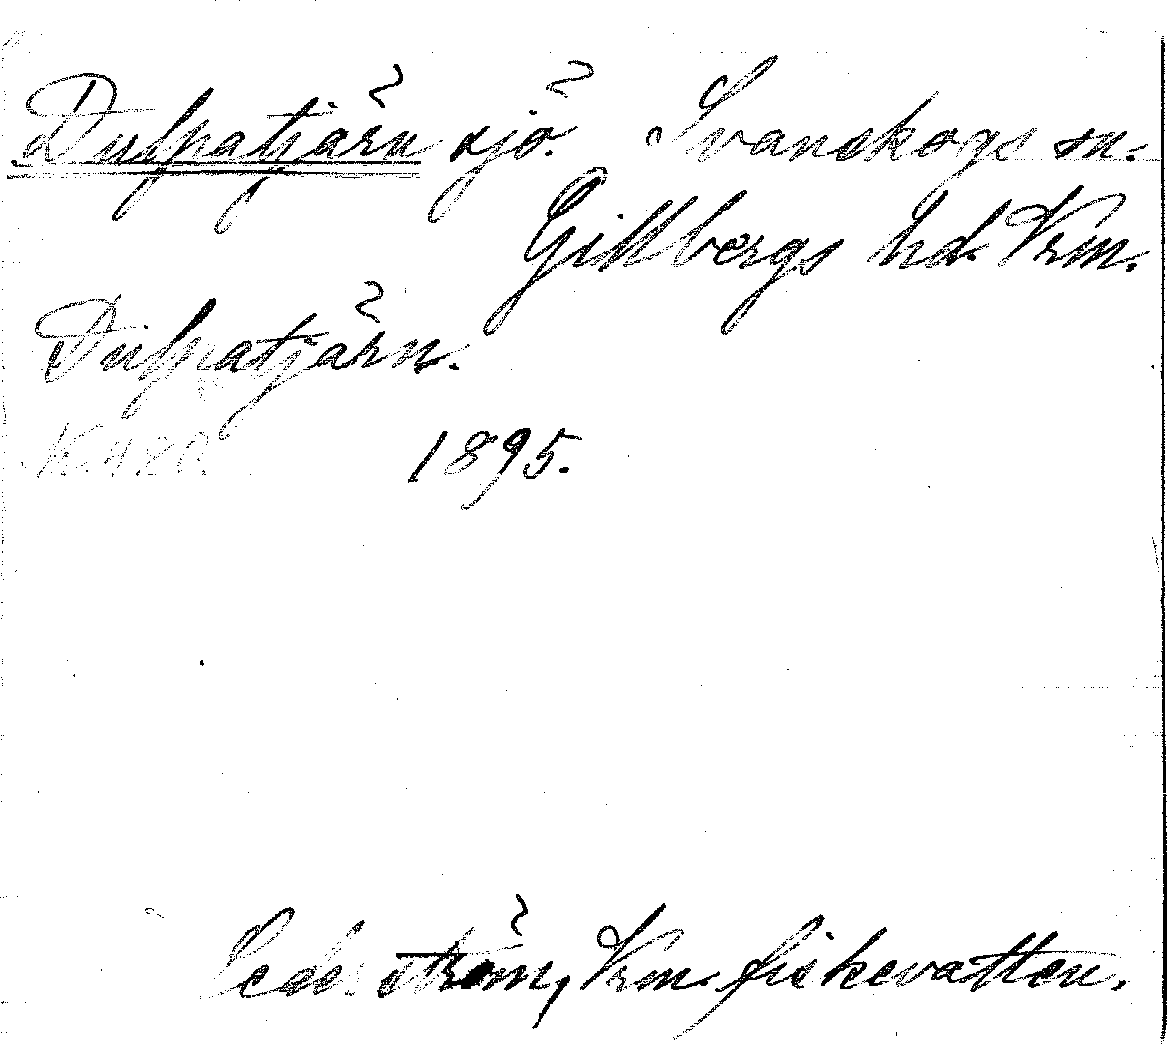 Dufpatjärn sjö. Svanskogs sn.
Gillbergs hd. Vrm.
Dufpatjärn.
K. 480. 1895.
Cederström, Vrm. fiskevatten.